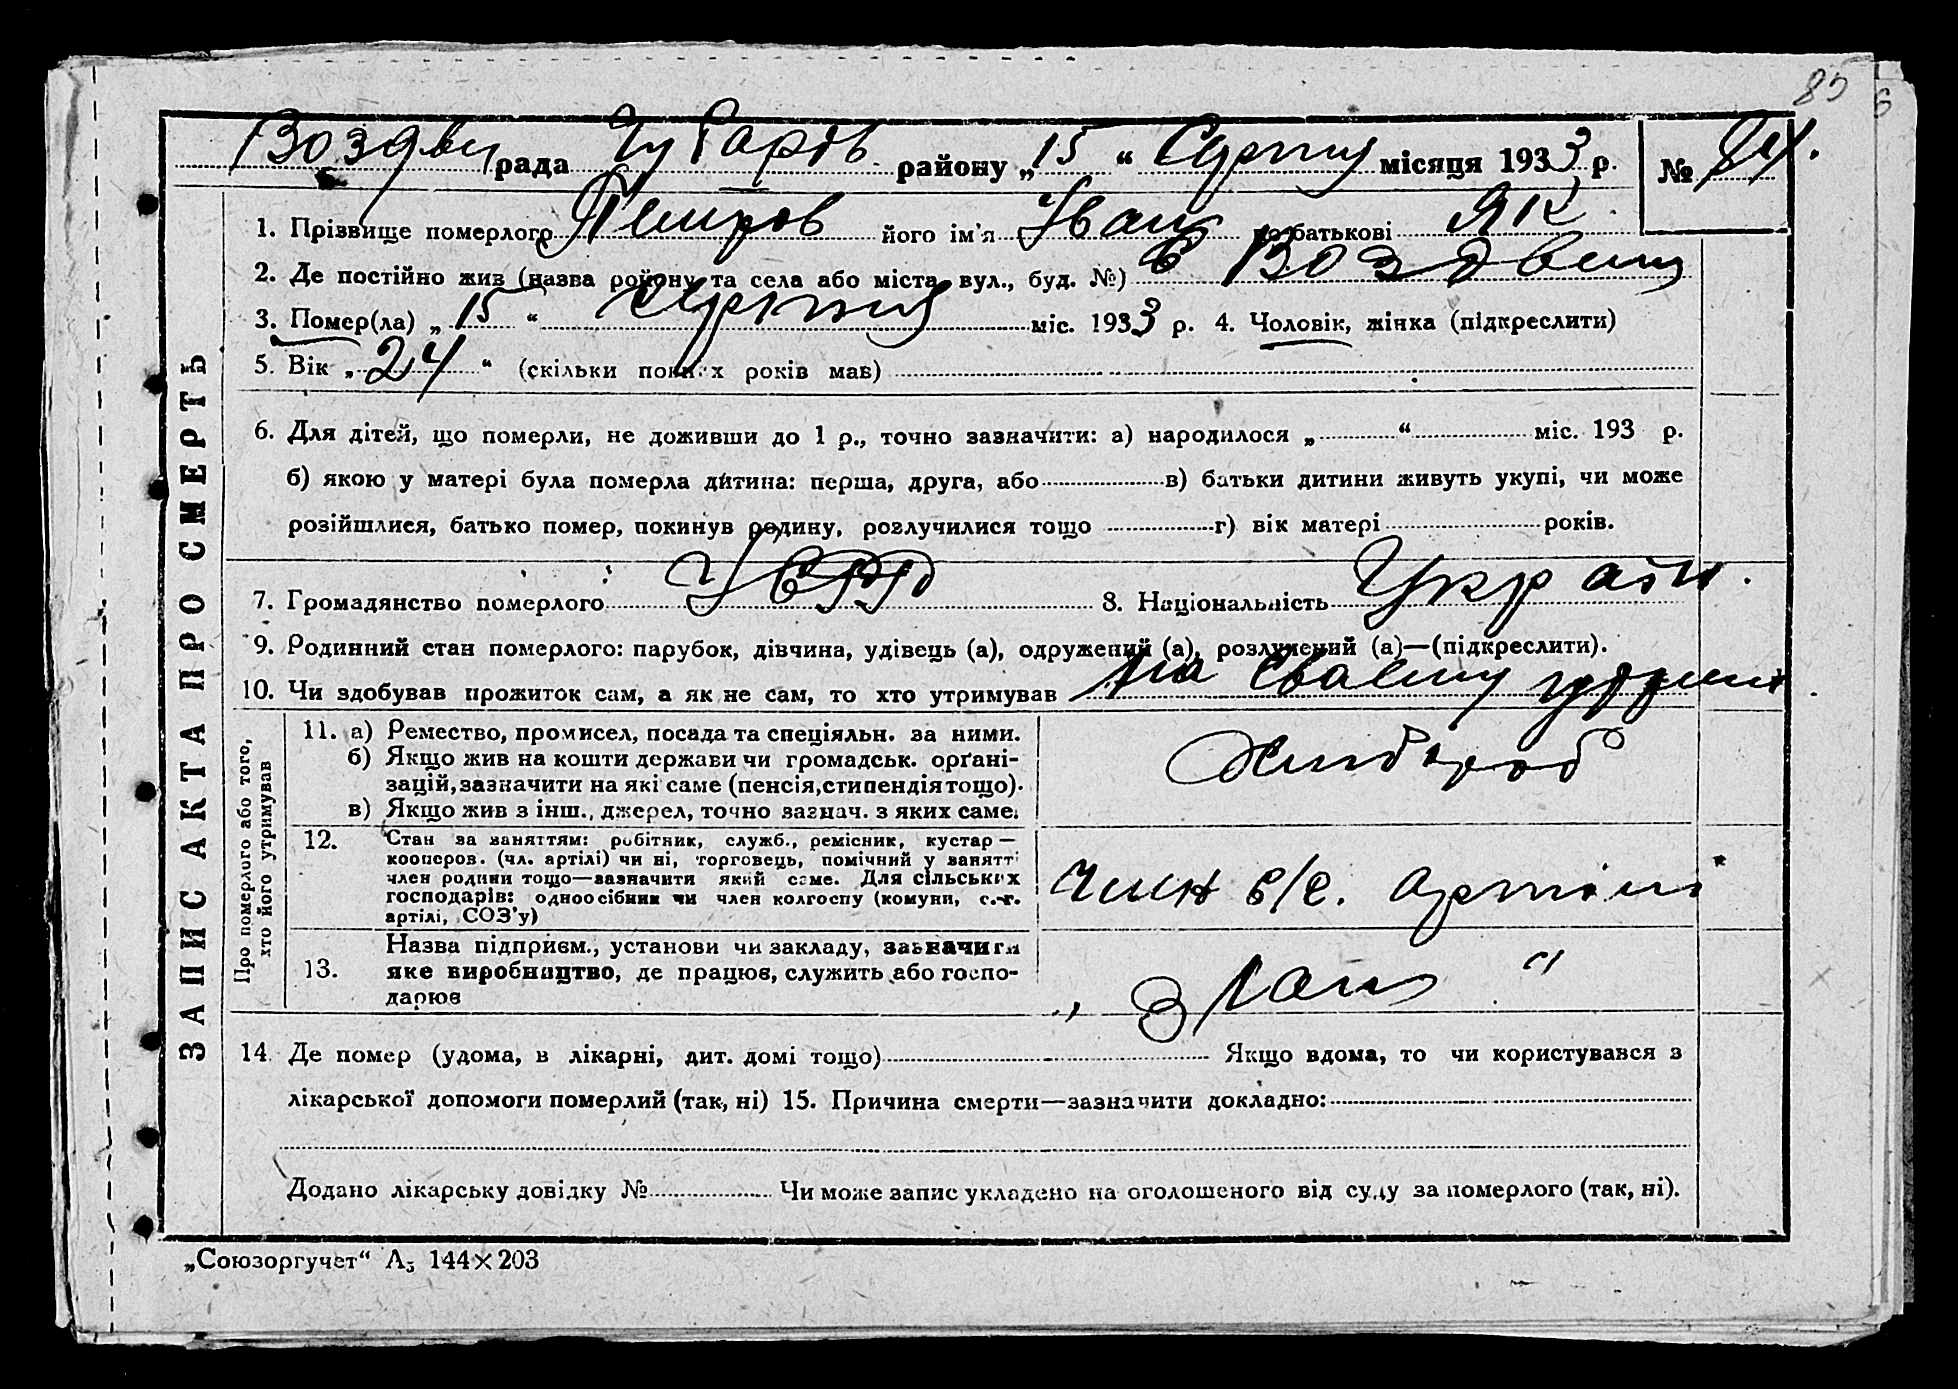 85
6
Воздви рада Чубарів району „15“ Серпня місяця 1933 р. № 84.
1. Прізвище померлого Петров його ім'я Іван по батькові Як.
2. Де постійно жив (назва району та села або міста, вул., буд. №) с Воздвиж
3. Помер(ла) „15“ серпня міс. 1933 р. 4. Чоловік, жінка (підкреслити)
5. Вік „24“ (скільки повних років мав)
6. Для дітей, що померли, не доживши до 1 р., точно зазначити: а) народилося „ “ міс. 193 р.
б) якою у матері була померла дитина: перша, друга, або в) батьки дитини живуть укупі, чи може
розійшлися, батько помер, покинув родину, розлучилися тощо г) вік матері років.
7. Громадянство померлого УСРР 8. Національність Україн.
9. Родинний стан померлого: парубок, дівчина, удівець (а), одружений (а), розлучений (а)—(підкреслити).
10. Чи здобував прожиток сам, а як не сам, то хто утримував на своєму утриман
ЗАПИС АКТА ПРО СМЕРТЬ
Про померлого або того,
хто його утримував
11. а) Ремество, промисел, посада та спеціяльн. за ними.
б) Якщо жив на кошти держави чи громадськ. орґані-
зацій, зазначити на які саме (пенсія, стипендія тощо).
в) Якщо жив з інш., джерел, точно зазнач. з яких саме.
Хлібороб
12. Стан за заняттям: робітник, служб., ремісник, кустар—
кооперов. (чл. артілі) чи ні, торговець, помічний у занятті
член родини тощо—зазначити який саме. Для сільських
господарів: одноосібник чи член колгоспу (комуни, с.-г.
артілі, СОЗ'у)
член с/г. артілі
13. Назва підприєм., установи чи закладу, зазначити
яке виробництво, де працює, служить або госпо-
дарює
14. Де помер (удома, в лікарні, дит. домі тощо) Якщо вдома, то чи користувався з
лікарської допомоги померлий (так, ні) 15. Причина смерти—зазначити докладно:
Додано лікарську довідку № Чи може запис укладено на оголошеного від суду за померлого (так, ні).
„Союзоргучет“ А₅ 144×203